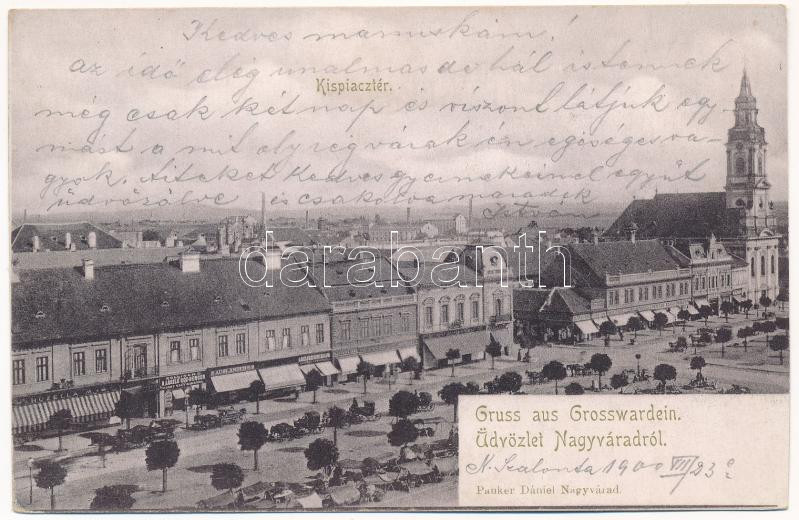 Kedves mamuskám!
az idő elég unalmas de hál istennek
még csak két nap és viszont látjuk egy
mást a mit ely rég várok én egésséges va-
gyok.
Kedves gyermekeimel együtt
üdvözölve és csakolva maradok
István
Kispiacztér.
darabanth
Gruss aus Grosswardein.
Üdvözlet Nagyváradról.
N. Szalonta 1900 VII/23
Pauker Dániel Nagyvárad.